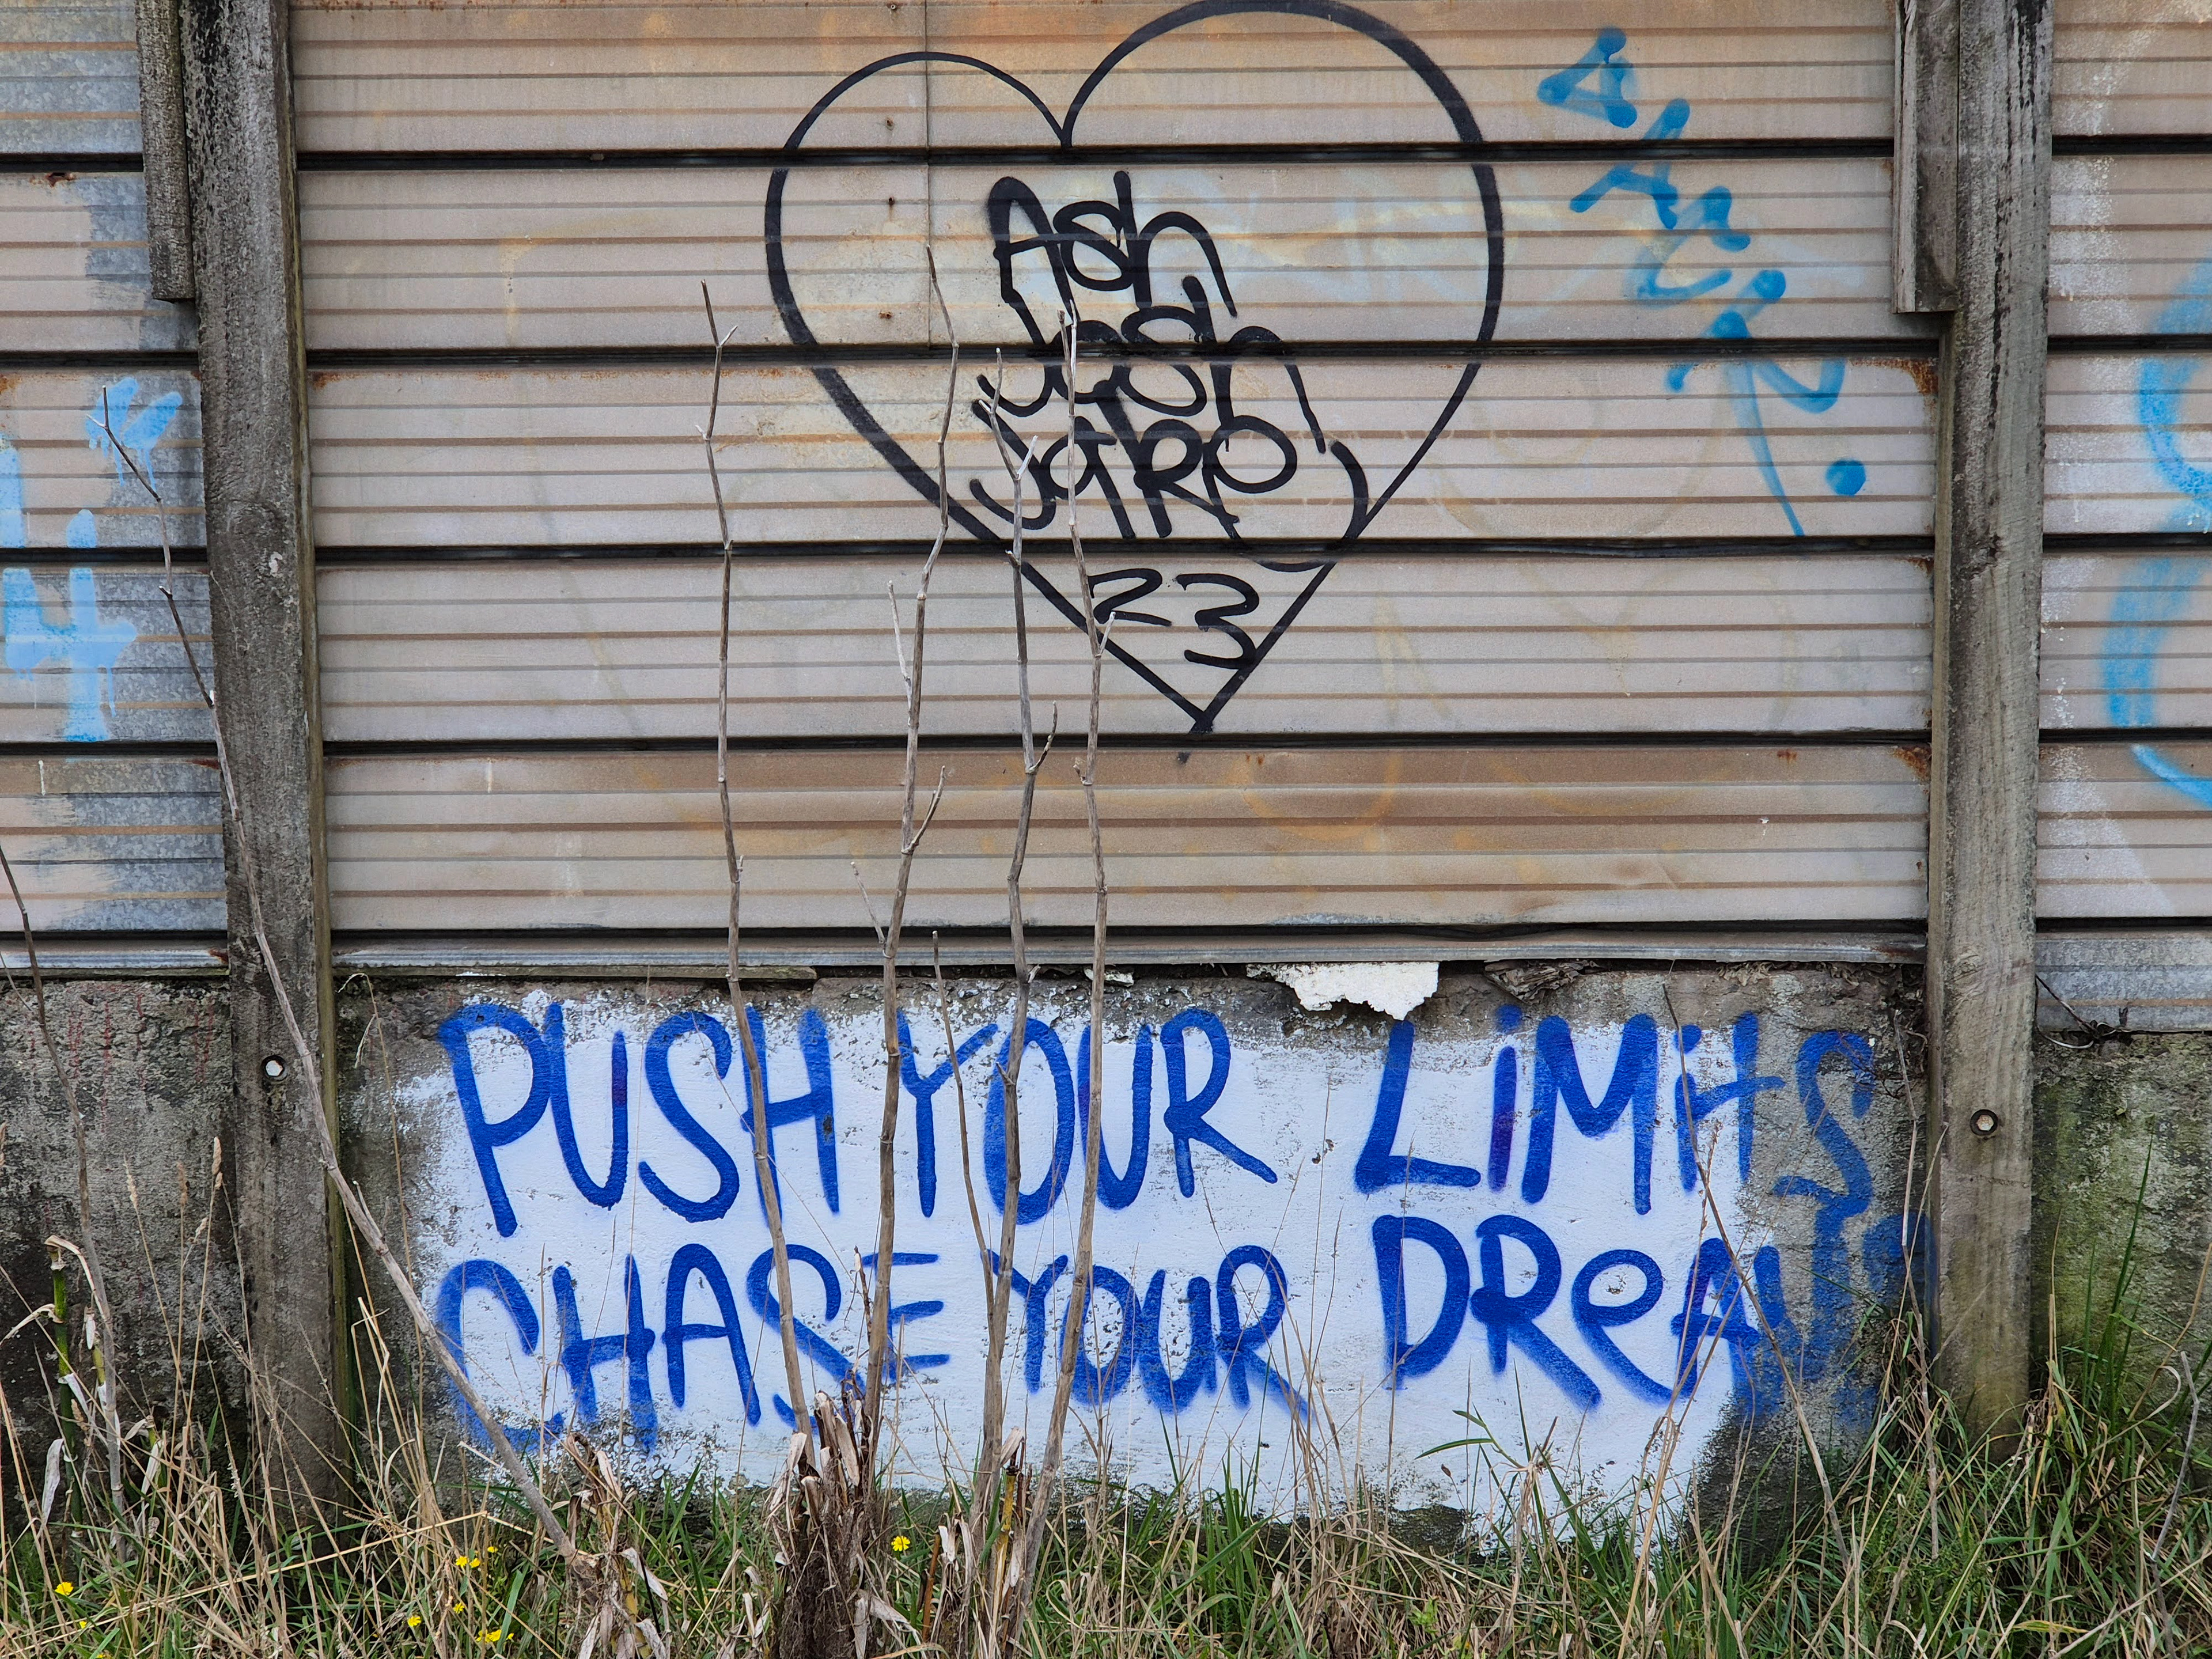 Ash
Josh
Jake
23
PUSH YOUR LiMitS
CHASE YOUR DReAM